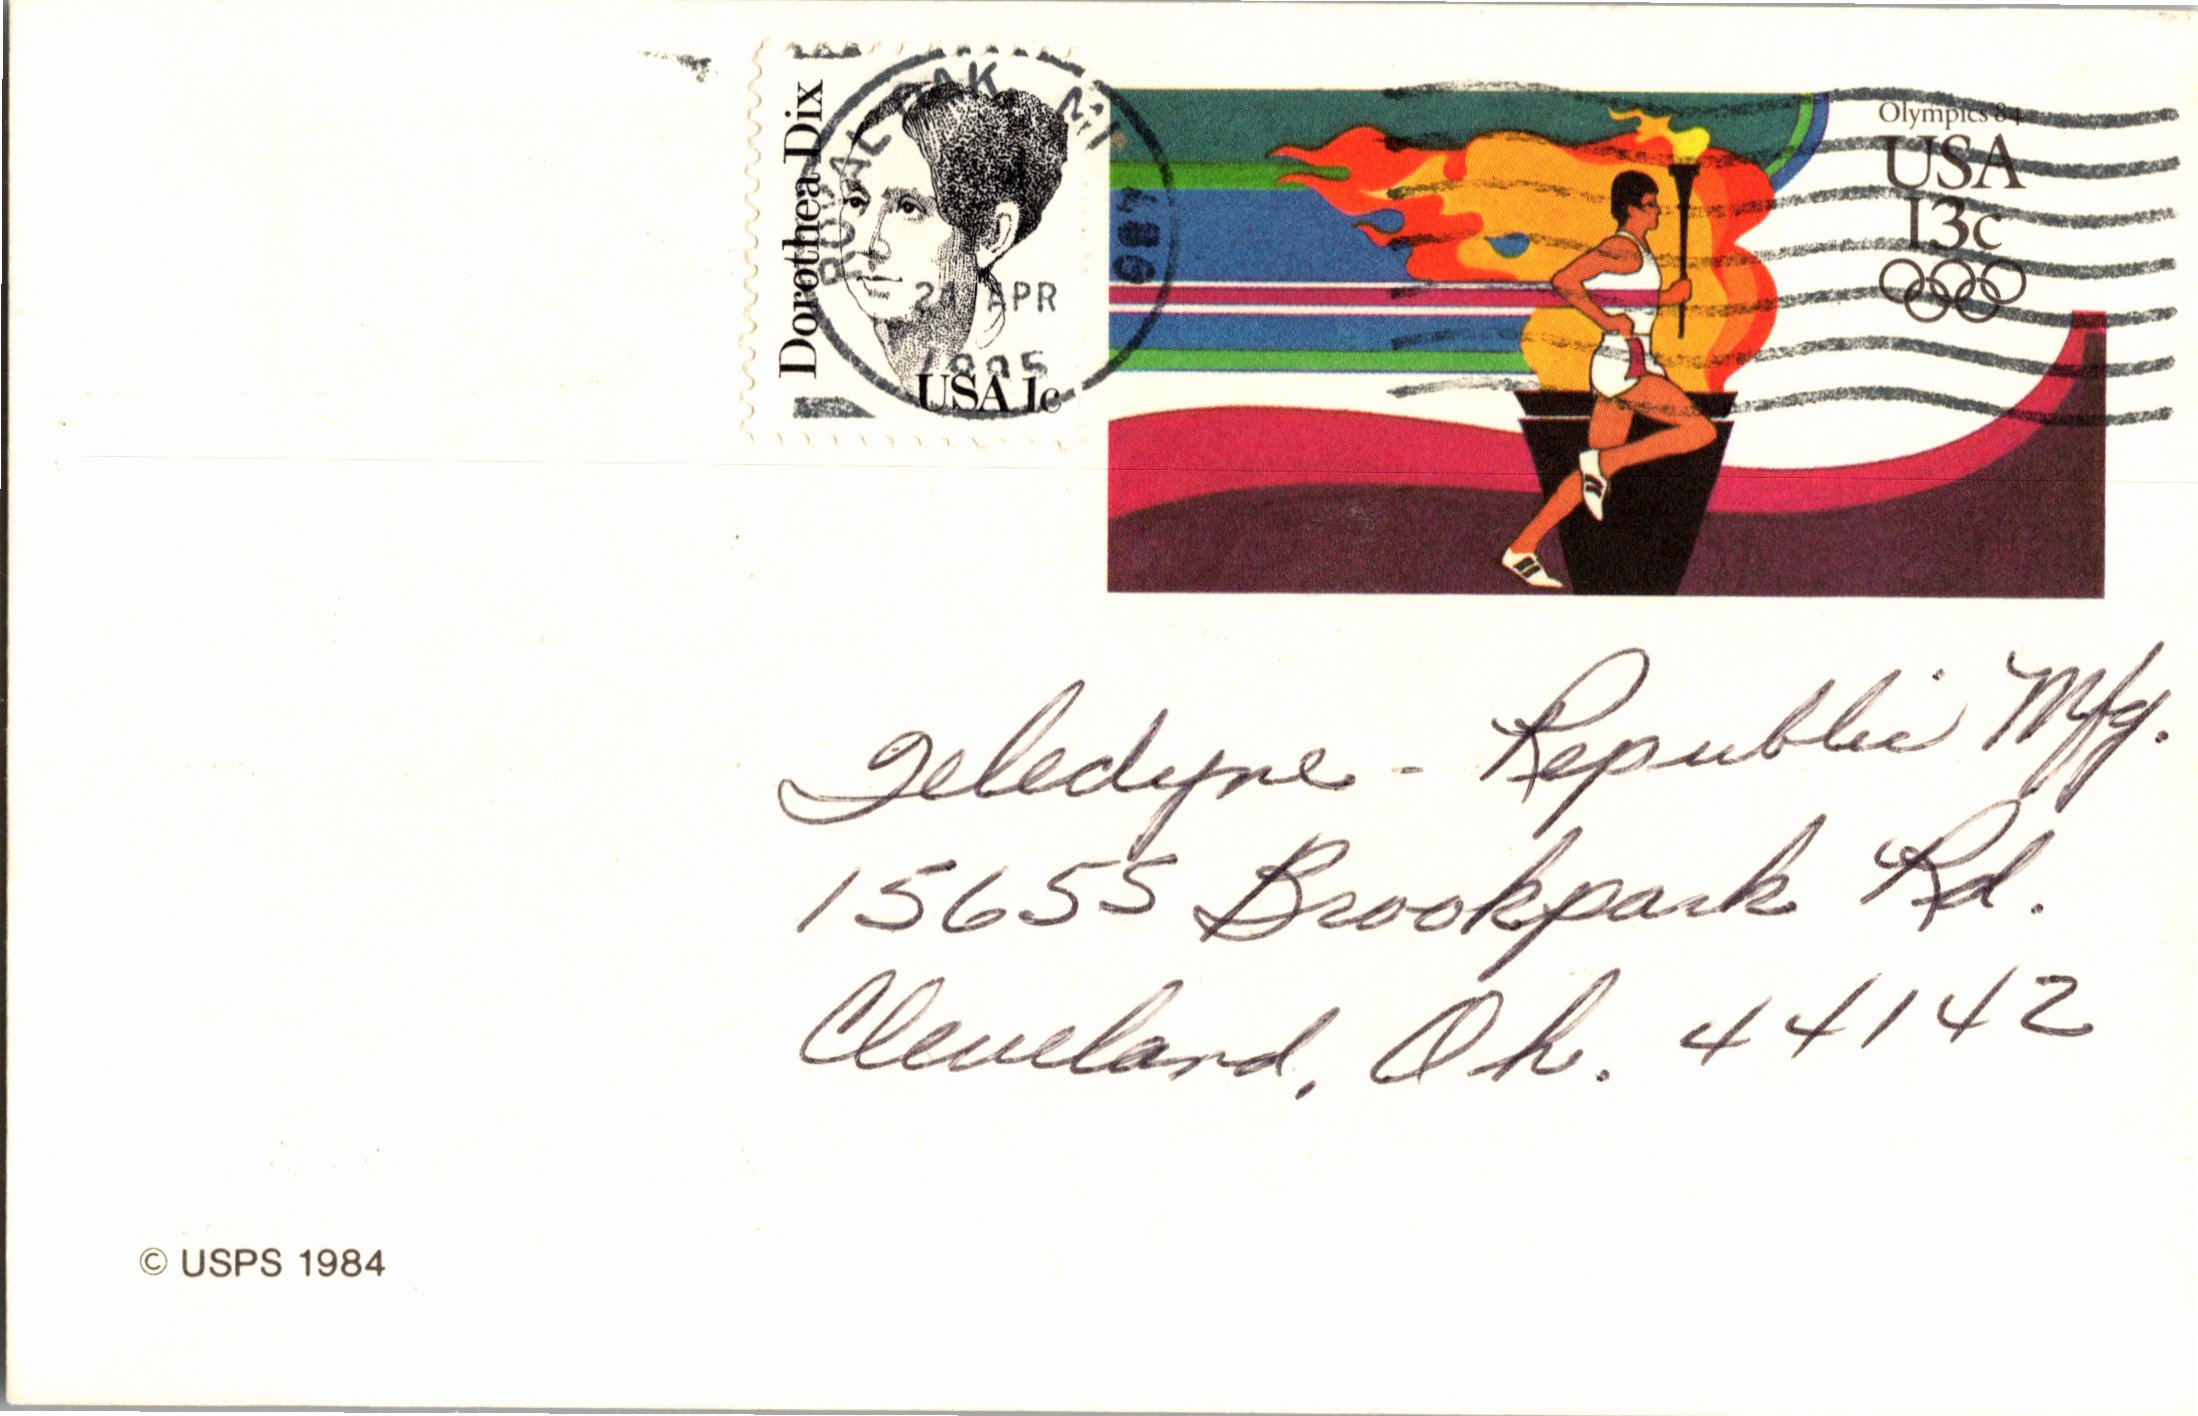 Dorothea Dix
USA 1c
ROYAL OAK MI
APR
Olympics 84
USA
13c
Teledyne - Republic Mfg.
15655 Brookpark Rd.
Cleveland, Oh. 44142
© USPS 1984